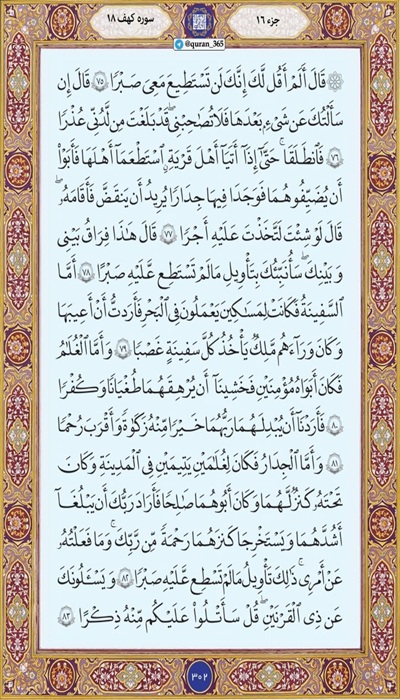 جزء ۱۶
سوره کهف ۱۸
@quran_365
۞ قَالَ أَلَمْ أَقُل لَّكَ إِنَّكَ لَن تَسْتَطِيعَ مَعِيَ صَبْرًا ۝٧٥ قَالَ إِن
سَأَلْتُكَ عَن شَيْءٍ بَعْدَهَا فَلَا تُصَاحِبْنِي ۖ قَدْ بَلَغْتَ مِن لَّدُنِّي عُذْرًا
۝٧٦ فَانطَلَقَا حَتَّىٰ إِذَا أَتَيَا أَهْلَ قَرْيَةٍ اسْتَطْعَمَا أَهْلَهَا فَأَبَوْا
أَن يُضَيِّفُوهُمَا فَوَجَدَا فِيهَا جِدَارًا يُرِيدُ أَن يَنقَضَّ فَأَقَامَهُ ۖ
قَالَ لَوْ شِئْتَ لَتَّخَذْتَ عَلَيْهِ أَجْرًا ۝٧٧ قَالَ هَٰذَا فِرَاقُ بَيْنِي
وَبَيْنِكَ ۚ سَأُنَبِّئُكَ بِتَأْوِيلِ مَا لَمْ تَسْتَطِع عَّلَيْهِ صَبْرًا ۝٧٨ أَمَّا
السَّفِينَةُ فَكَانَتْ لِمَسَاكِينَ يَعْمَلُونَ فِي الْبَحْرِ فَأَرَدتُّ أَنْ أَعِيبَهَا
وَكَانَ وَرَاءَهُم مَّلِكٌ يَأْخُذُ كُلَّ سَفِينَةٍ غَصْبًا ۝٧٩ وَأَمَّا الْغُلَامُ
فَكَانَ أَبَوَاهُ مُؤْمِنَيْنِ فَخَشِينَا أَن يُرْهِقَهُمَا طُغْيَانًا وَكُفْرًا
۝٨٠ فَأَرَدْنَا أَن يُبْدِلَهُمَا رَبُّهُمَا خَيْرًا مِّنْهُ زَكَوٰةً وَأَقْرَبَ رُحْمًا
۝٨١ وَأَمَّا الْجِدَارُ فَكَانَ لِغُلَامَيْنِ يَتِيمَيْنِ فِي الْمَدِينَةِ وَكَانَ
تَحْتَهُ كَنزٌ لَّهُمَا وَكَانَ أَبُوهُمَا صَالِحًا فَأَرَادَ رَبُّكَ أَن يَبْلُغَا
أَشُدَّهُمَا وَيَسْتَخْرِجَا كَنزَهُمَا رَحْمَةً مِّن رَّبِّكَ ۚ وَمَا فَعَلْتُهُ
عَنْ أَمْرِي ۚ ذَٰلِكَ تَأْوِيلُ مَا لَمْ تَسْطِع عَّلَيْهِ صَبْرًا ۝٨٢ وَيَسْأَلُونَكَ
عَن ذِي الْقَرْنَيْنِ ۖ قُلْ سَأَتْلُوا عَلَيْكُم مِّنْهُ ذِكْرًا ۝٨٣
۳۰۲